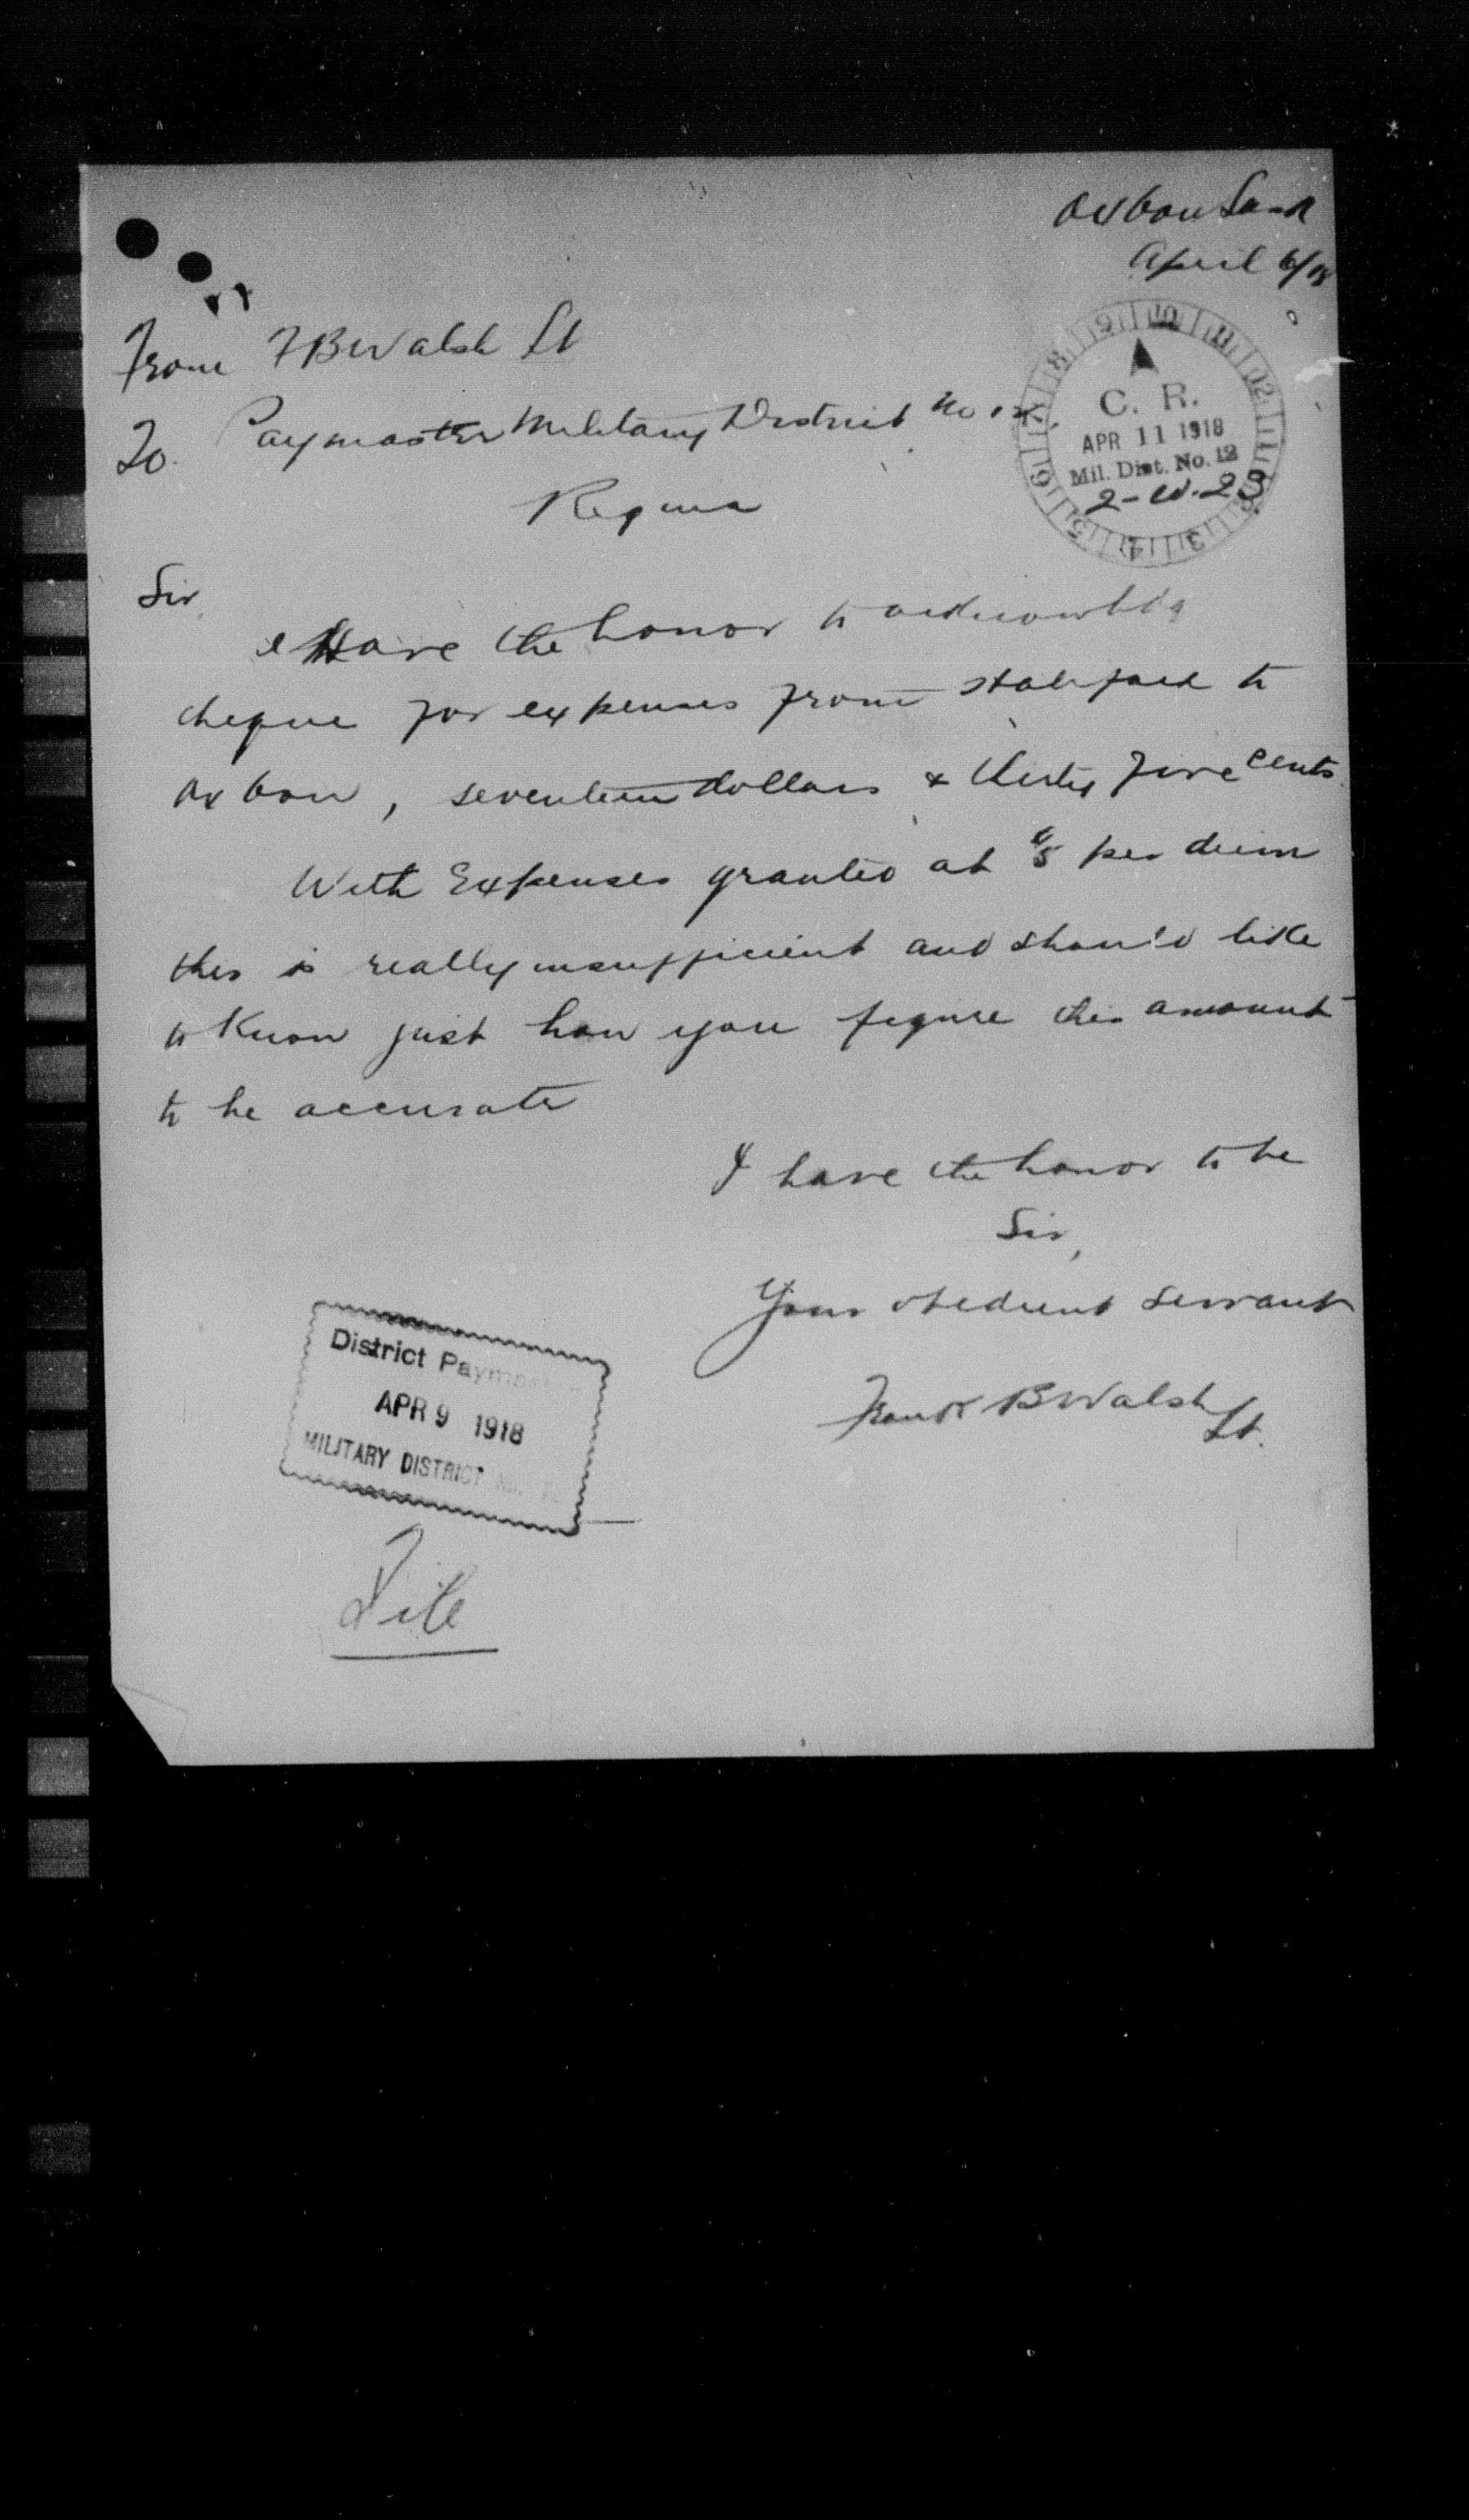 Oxbow Sask
April 6/18
From F B Walsh Lt
To Paymaster Military District No 12
Regina
9 10 11 12 1 2 3 4 5 6 7 8
C. R.
APR 11 1918
Mil. Dist. No. 12
2-W.23
Sir
I Have the honor to acknowledg
cheque for expenses from to
Oxbow, seventeen dollars & thirty five cents
With Expenses granted at $5 per diem
this is really insufficient and should like
to know just how you figure this amount
to be accurate
I have the honor to be
Sir,
Your obedient servant
Frank B Walsh Lt.
District Paymaster
APR 9 1918
MILITARY DISTRICT No. 12
File